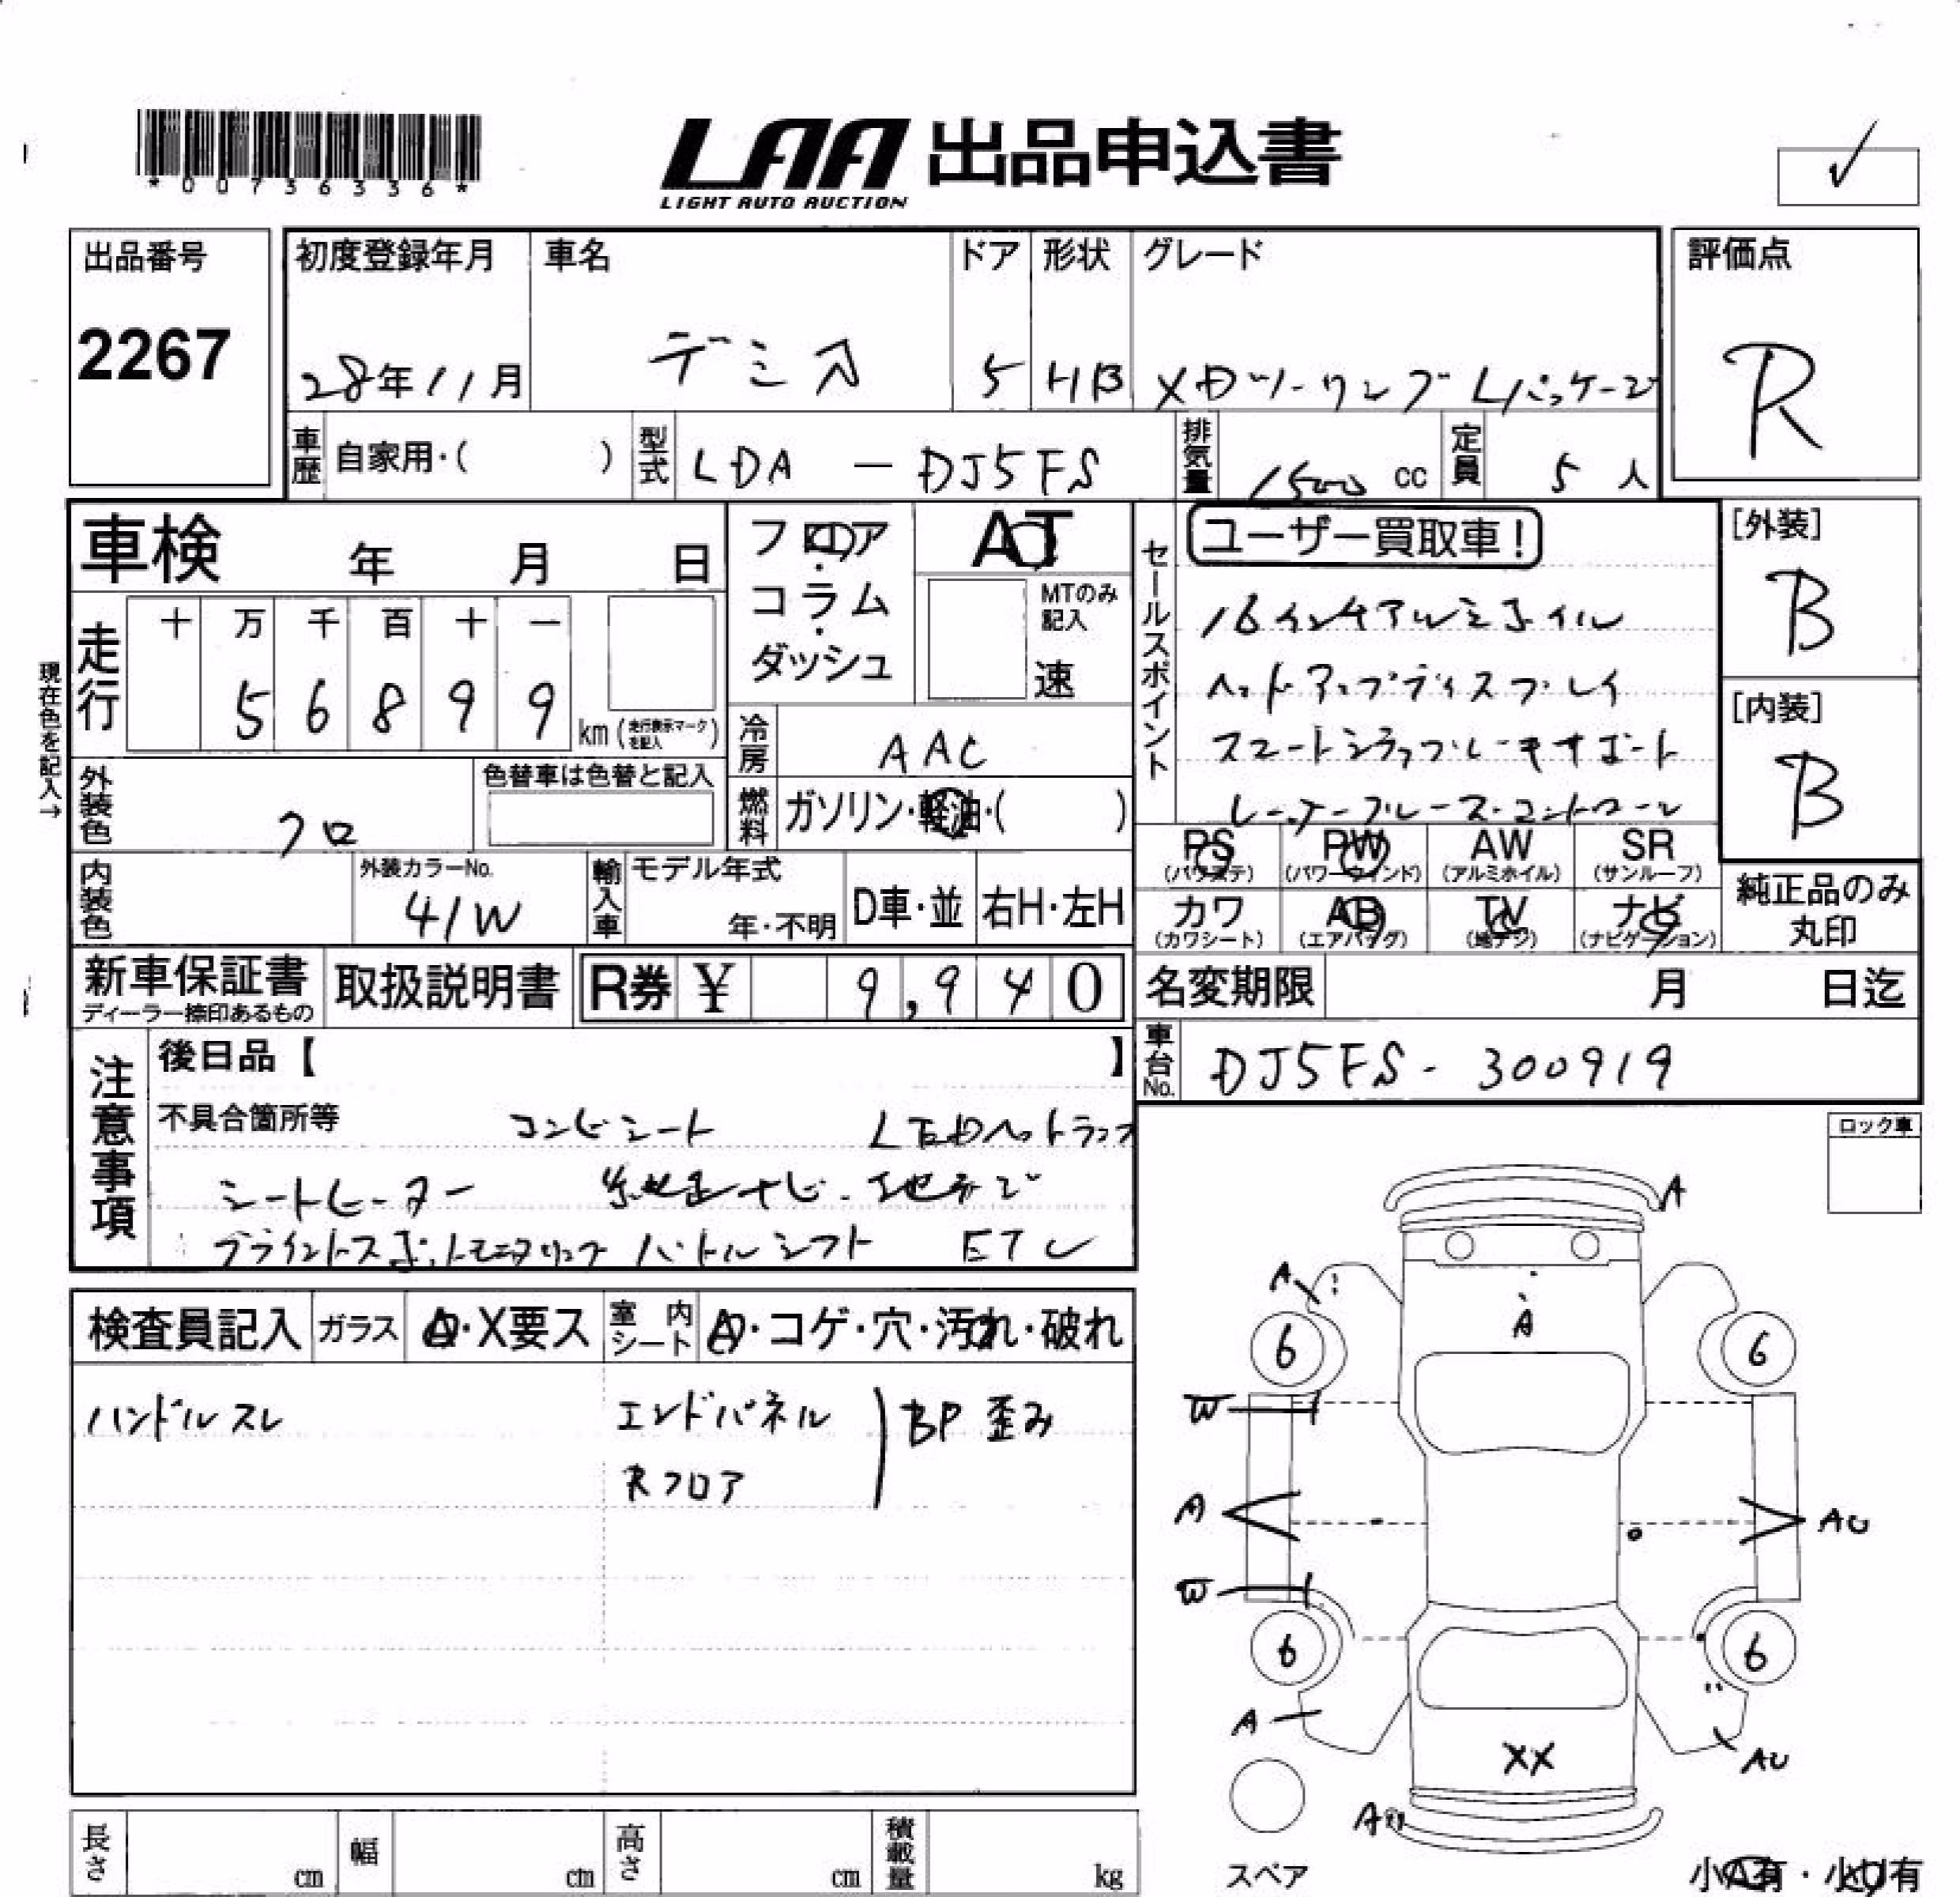 *00736336*
LAA 出品申込書
LIGHT AUTO AUCTION
出品番号
2267
初度登録年月
28年11月
車名
デミオ
ドア
5
形状
HB
グレード
XDツーリング Lパッケージ
評価点
R
車歴 自家用・( )
型式 LDA - DJ5FS
排気量 1500 cc
定員 5 人
車検 年 月 日
フロア・コラム・ダッシュ
AT
MTのみ記入
速
セールスポイント
ユーザー買取車!
16インチアルミホイル
ヘッドアップディスプレイ
スマートシティブレーキサポート
レーダークルーズコントロール
[外装]
B
[内装]
B
現在色を記入→
走行
十 万 千 百 十 一
5 6 8 9 9 km (走行表示マークを記入)
冷房 AAC
燃料 ガソリン・軽油・( )
外装色 クロ
色替車は色替と記入
内装色
外装カラーNo.
41W
輸入車 モデル年式
年・不明
D車・並
右H・左H
PS (パワステ)
PW (パワーウインド)
AW (アルミホイル)
SR (サンルーフ)
カワ (カワシート)
AB (エアバッグ)
TV (地デジ)
ナビ (ナビゲーション)
純正品のみ丸印
新車保証書
ディーラー捺印あるもの
取扱説明書
R券 ¥ 9,940
名変期限 月 日迄
車台No. DJ5FS - 300919
注意事項
後日品【 】
不具合箇所等 コンビシート LEDヘットランプ
シートヒーター 純正ナビ・地デジ
ブラインドスポットモニタリング パドルシフト ETC
ロック車
検査員記入
ガラス A・X要ス
室内シート A・コゲ・穴・汚れ・破れ
ハンドルスレ
エンドパネル
Rフロア
BP 歪み
A
A
A
6
6
W
A
AU
W
6
6
A
AU
XX
A
スペア
小A有・小U有
長さ cm
幅 cm
高さ cm
積載量 kg